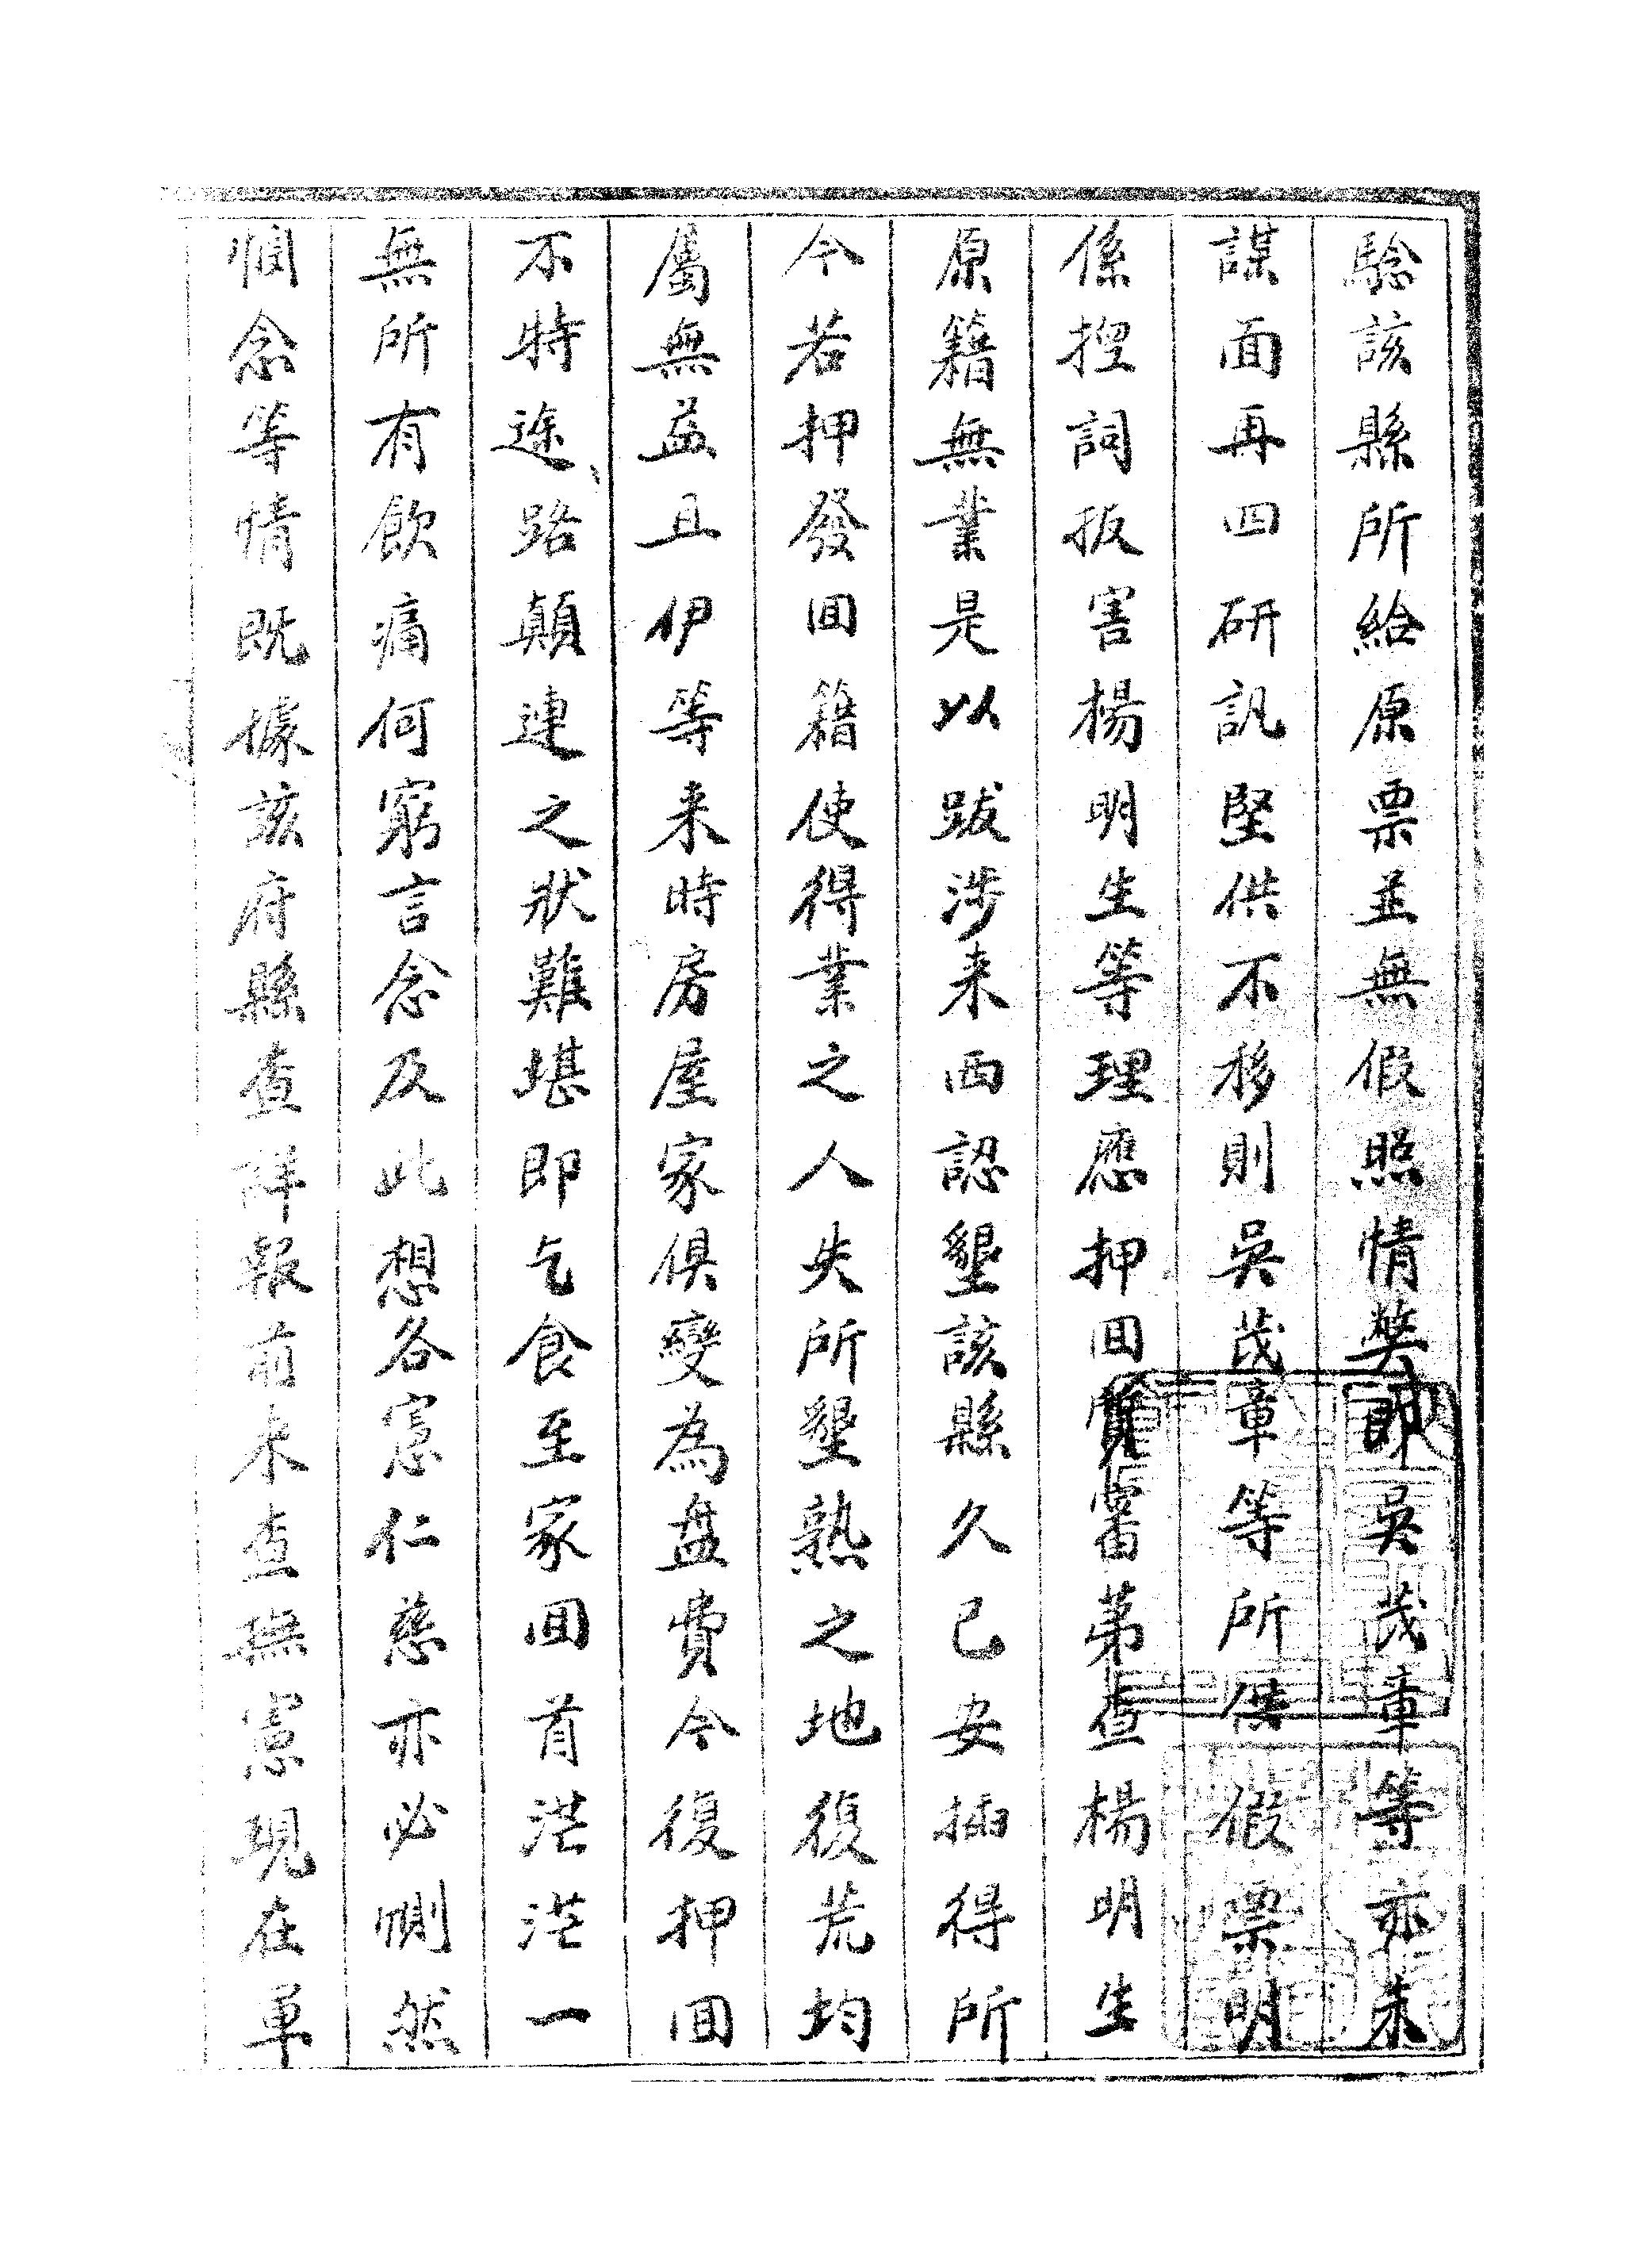 騐該縣所給原票並無假照情獘即吳茂章等亦未
謀面再四研訊堅供不移則吳茂章等所供假票明
係揑詞扳害楊明生等理應押回質審第查楊明生
原籍無業是以跋涉来西認墾該縣久已安插得所
今若押發回籍使得業之人失所墾熟之地復荒均
屬無益且伊等来時房屋家俱變為盘費今復押回
不特途路顛連之狀難堪即乞食至家回首茫茫一
無所有飲痛何窮言念及此想各憲仁慈亦必惻然
憫念等情既據該府縣查詳報前来查撫憲現在軍